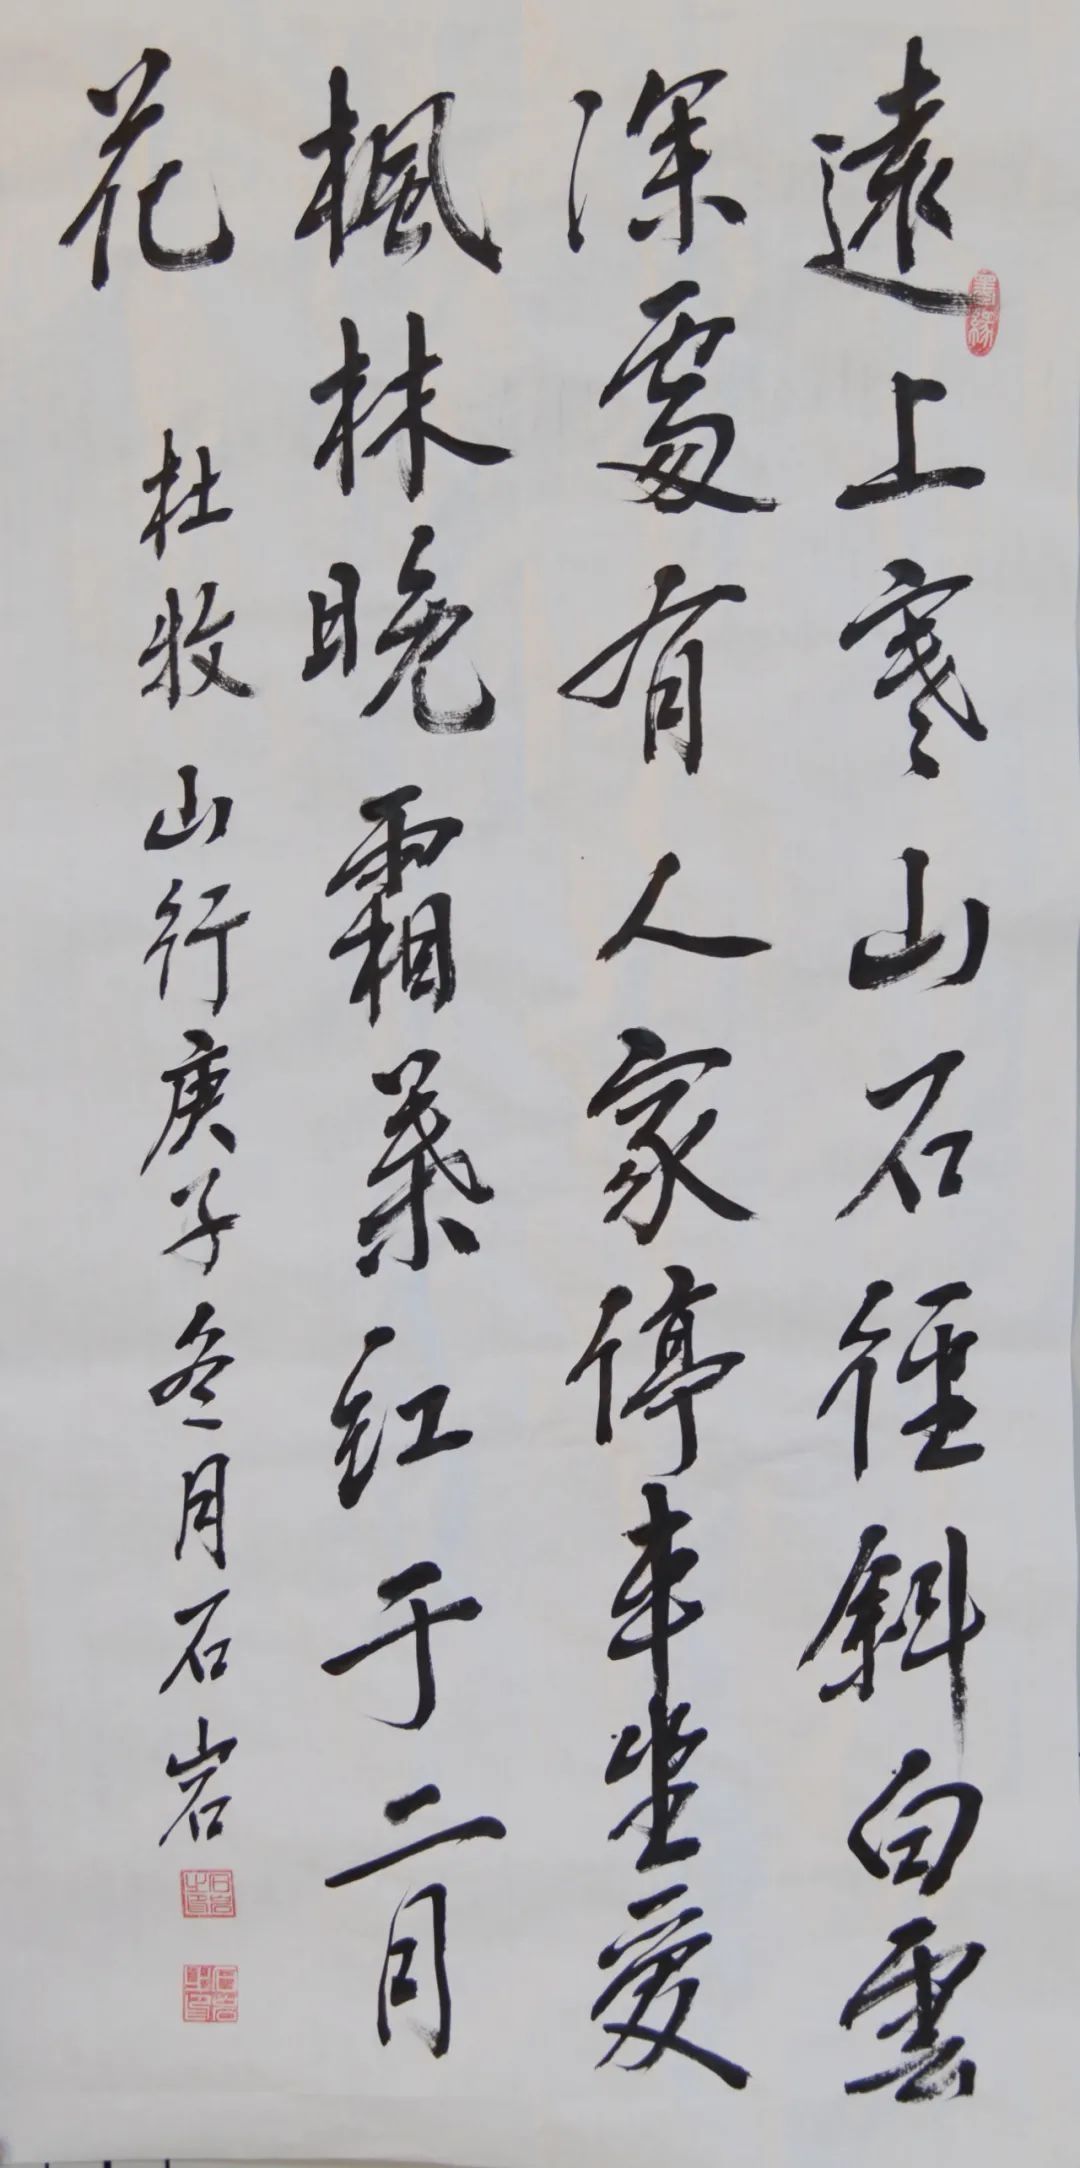 遠上寒山石徑斜白雲
深處有人家停车坐爱
楓林晚霜葉红于二月
花
杜牧山行庚子冬月石岩
墨緣